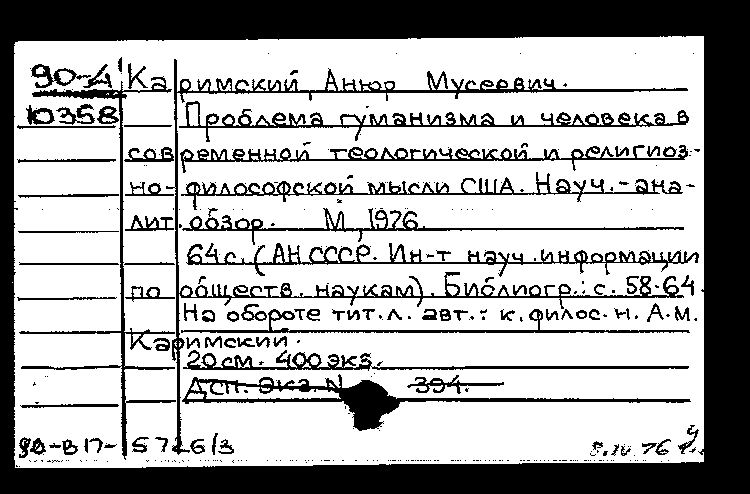 90-4 Каримский, Анюр Мусеевич.
10358 Проблема гуманизма и человека в
современной теологической и религиоз-
но-философской мысли США. Науч.-ана-
лит. обзор. М., 1976.
64 с. (АН СССР. Ин-т науч. информации
по обществ. наукам). Библиогр.: с. 58-64.
На обороте тит. л. авт.: к. филос. н. А.М.
Каримский.
20 см. 400 экз.
Дсп. Экз. N 394.
90-В17-5726/3
8.IV 76